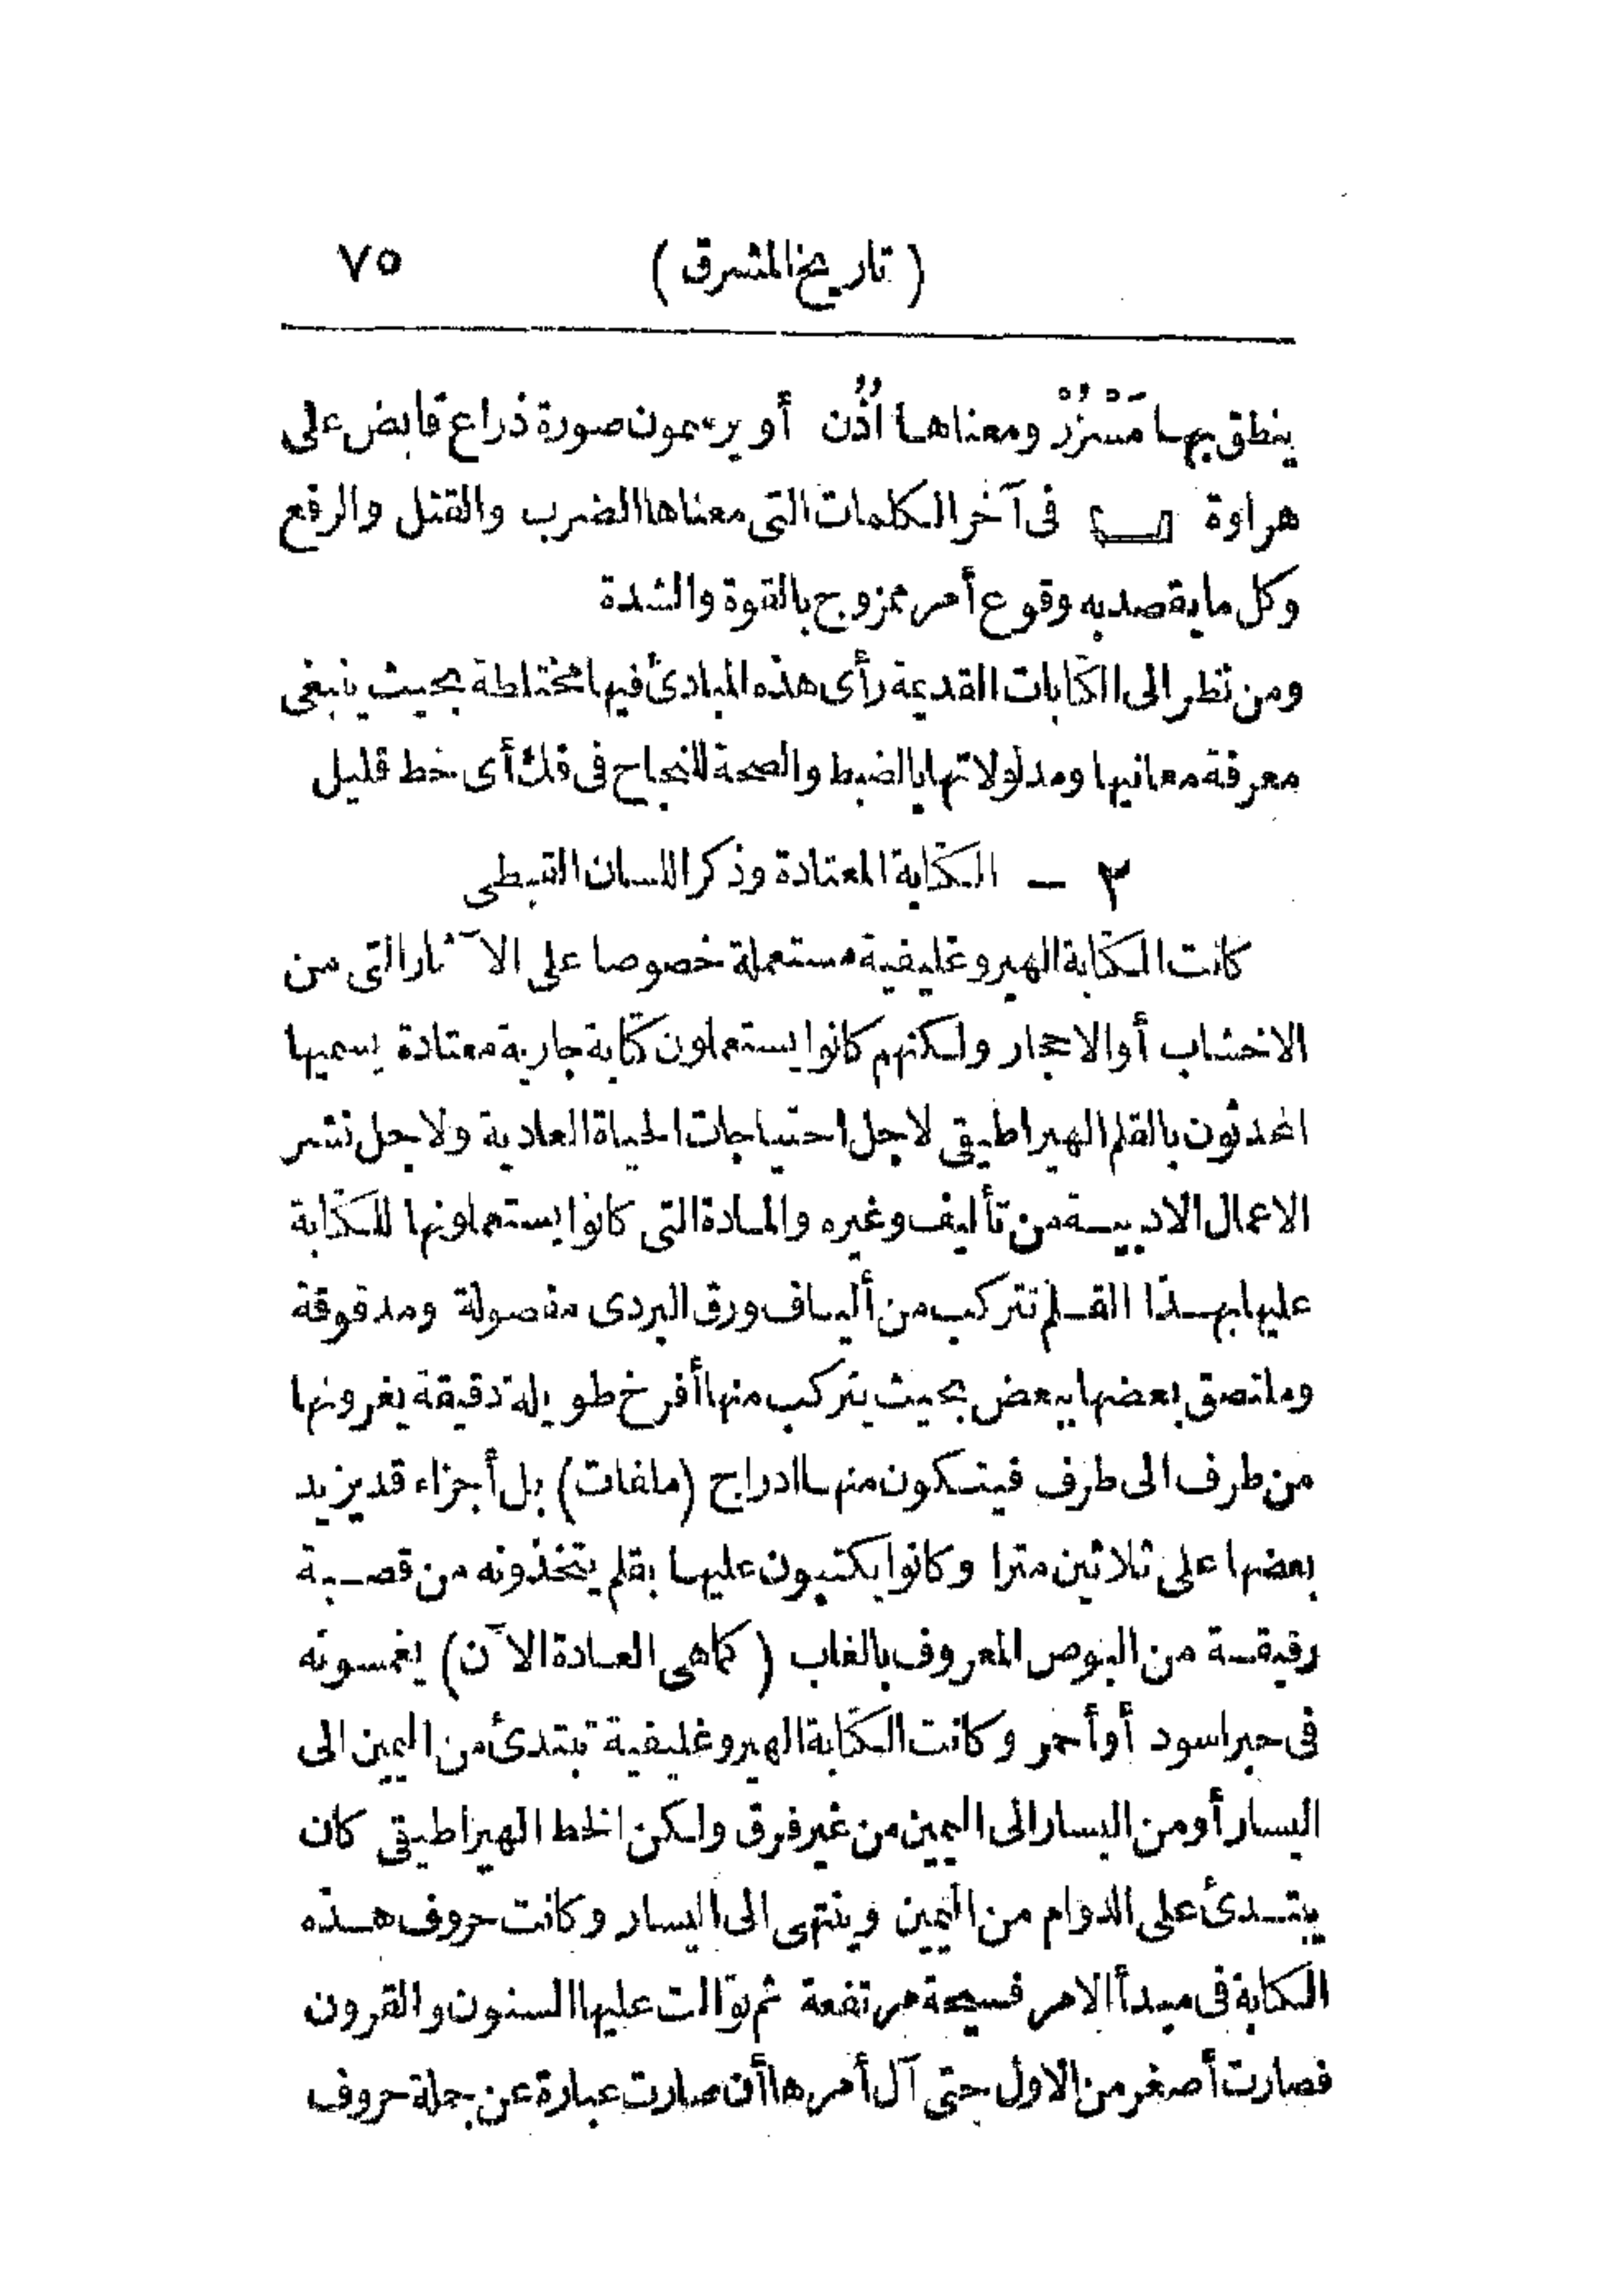 ( تاريخ المشرق ) ٧٥
ينطق بها مَسْزُرْ ومعناها اُذُن أو يرسمون صورة ذراع قابض على
هراوة فى آخر الكلمات التى معناها الضرب والقتل والرفع
وكل ما يقصد به وقوع أمر ممزوج بالقوة والشدة
ومن نظر الى الكتابات القديمة رأى هذه المبادئ فيها مختلطة بحيث ينبغى
معرفة معانيها ومدلولاتها بالضبط والصحة للنجاح فى فك أى خط قليل
٣ — الكتابة المعتادة وذكر اللسان القبطى
كانت الكتابة الهيروغليفية مستعملة خصوصا على الآثار التى من
الاخشاب أو الاحجار ولكنهم كانوا يستعملون كتابة جارية معتادة يسميها
المحدثون بالقلم الهيراطيقى لاجل احتياجات الحياة العادية ولاجل نشر
الاعمال الادبية من تأليف وغيره والمادة التى كانوا يستعملونها للكتابة
عليها بهذا القلم تتركب من ألياف ورق البردى مفصولة ومدقوقة
وملتصق بعضها ببعض بحيث يتركب منها أفرخ طويلة دقيقة يغرونها
من طرف الى طرف فيتكون منها ادراج (ملفات) بل أجزاء قد يزيد
بعضها على ثلاثين مترا وكانوا يكتبون عليها بقلم يتخذونه من قصبة
رفيقة من البوص المعروف بالغاب (كما هى العادة الآن) يغمسونه
فى حبر اسود أو أحمر وكانت الكتابة الهيروغليفية تبتدئ من اليمين الى
اليسار أو من اليسار الى اليمين من غير فرق ولكن الخط الهيراطيقى كان
يبتدئ على الدوام من اليمين وينتهى الى اليسار وكانت حروف هذه
الكتابة فى مبدأ الامر فسيحة مرتفعة ثم توالت عليها السنون والقرون
فصارت أصغر من الاول حتى آل أمرها أن صارت عبارة عن جملة حروف